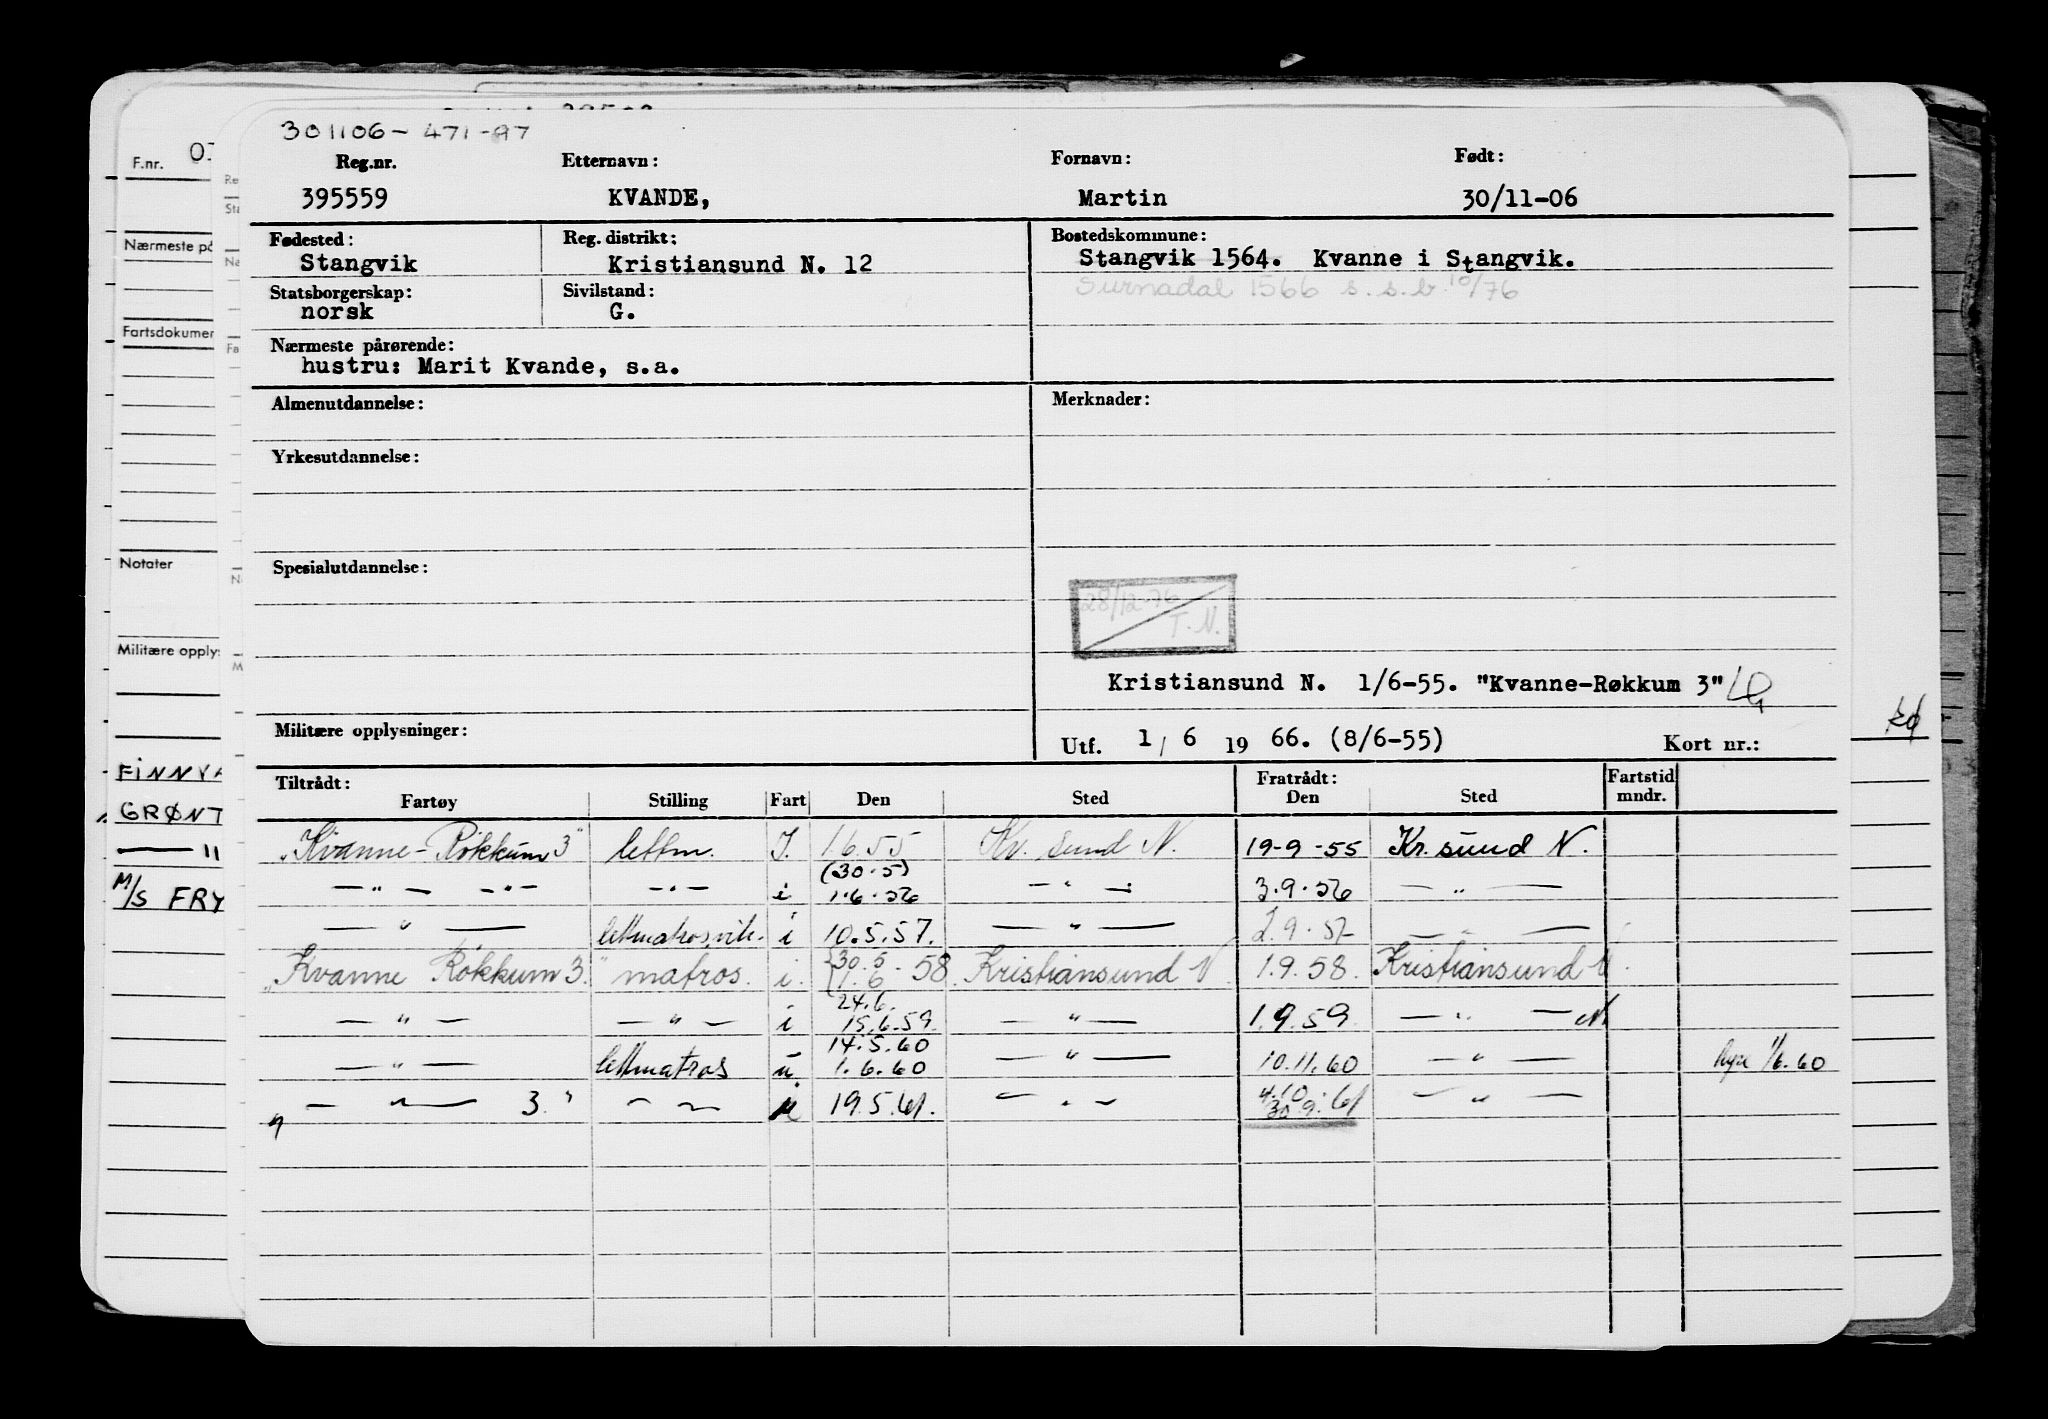 301106- 471-97
F.nr. 07
Reg.nr. Etternavn: Fornavn: Født:
395559 KVANDE, Martin 30/11-06
Fødested: Reg. distrikt: Bostedskommune:
Stangvik Kristiansund N. 12 Stangvik 1564. Kvanne i Stangvik.
Statsborgerskap: Sivilstand: Surnadal 1566 s.s.b. 10/76
norsk G.
Nærmeste pårørende:
hustru: Marit Kvande, s.a.
Almenutdannelse: Merknader:
Yrkesutdannelse:
Spesialutdannelse:
28/12-76
T.N.
Kristiansund N. 1/6-55. "Kvanne-Røkkum 3"
Militære opplysninger: Utf. 1/ 6 19 66. (8/6-55) Kort nr.:
Tiltrådt: Fratrådt: Fartstid
Fartøy Stilling Fart Den Sted Den Sted mndr.
"Kvanne-Røkkum 3" lettm. I. 1.6.55 Kr. sund N. 19-9-55 Kr. sund N.
(30.5)
— " — — " — — " — i 1.6.56 — " — 3.9.56 — " —
— " — lettmatros,vik. i 10.5.57. — " — 2.9.57 — " —
30.5
"Kvanne Røkkum 3." matros. i. 1.6 - 58. Kristiansund N 1.9.58. Kristiansund N.
24.6.
— " — — " — i 15.6.59. — " — 1.9.59 — " — N
14.5.60
— " — lettmatros u. 1.6.60 — " — 10.11.60 — " — hyre 1/6.60
4.10
" — " — 3." — " — u 19.5.61. — " — 30.9.61 — " —
Nærmeste på
Fartsdokumen
Notater
Militære opplys
FINNVA
GRØNT
— "
M/S FRY